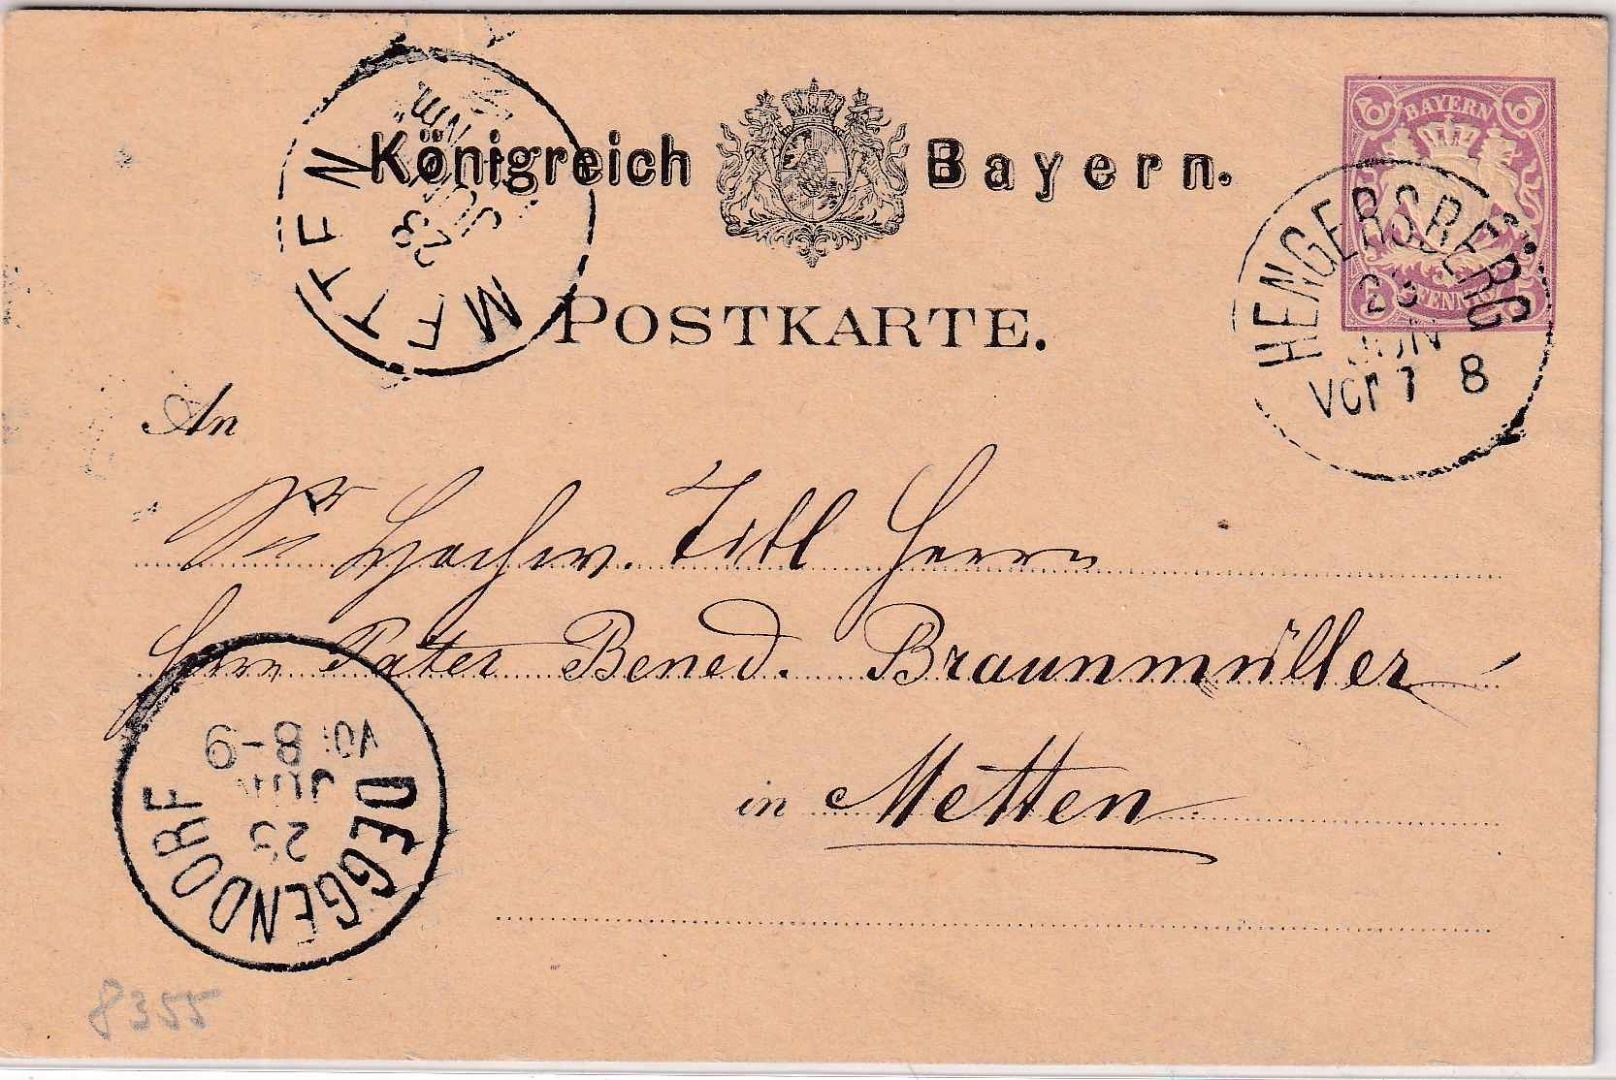 Königreich Bayern.
BAYERN
PFENNIG
POSTKARTE.
METTEN
23
JUN
Nm.
HENGERSBERG
23
JUN
Vor 7 8
An
Sr Hochw. Titl Herrn
Herrn Pater Bened. Braunmüller
in Metten
DEGGENDORF
23
JUN
VOR
8-9
8355